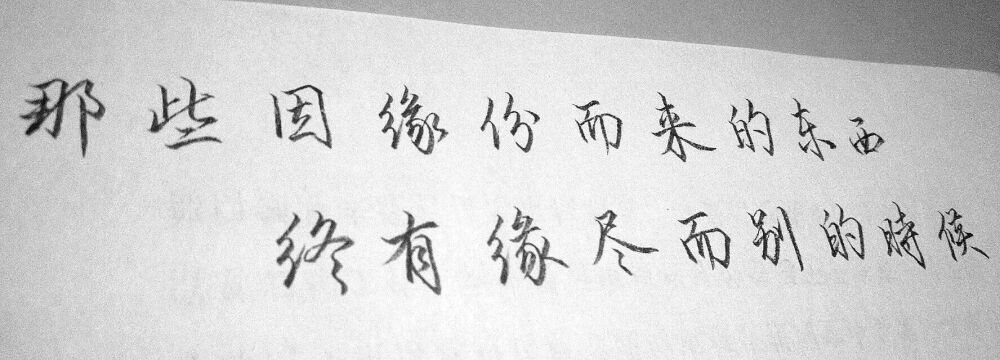 那些因缘份而来的东西
终有缘尽而别的時候